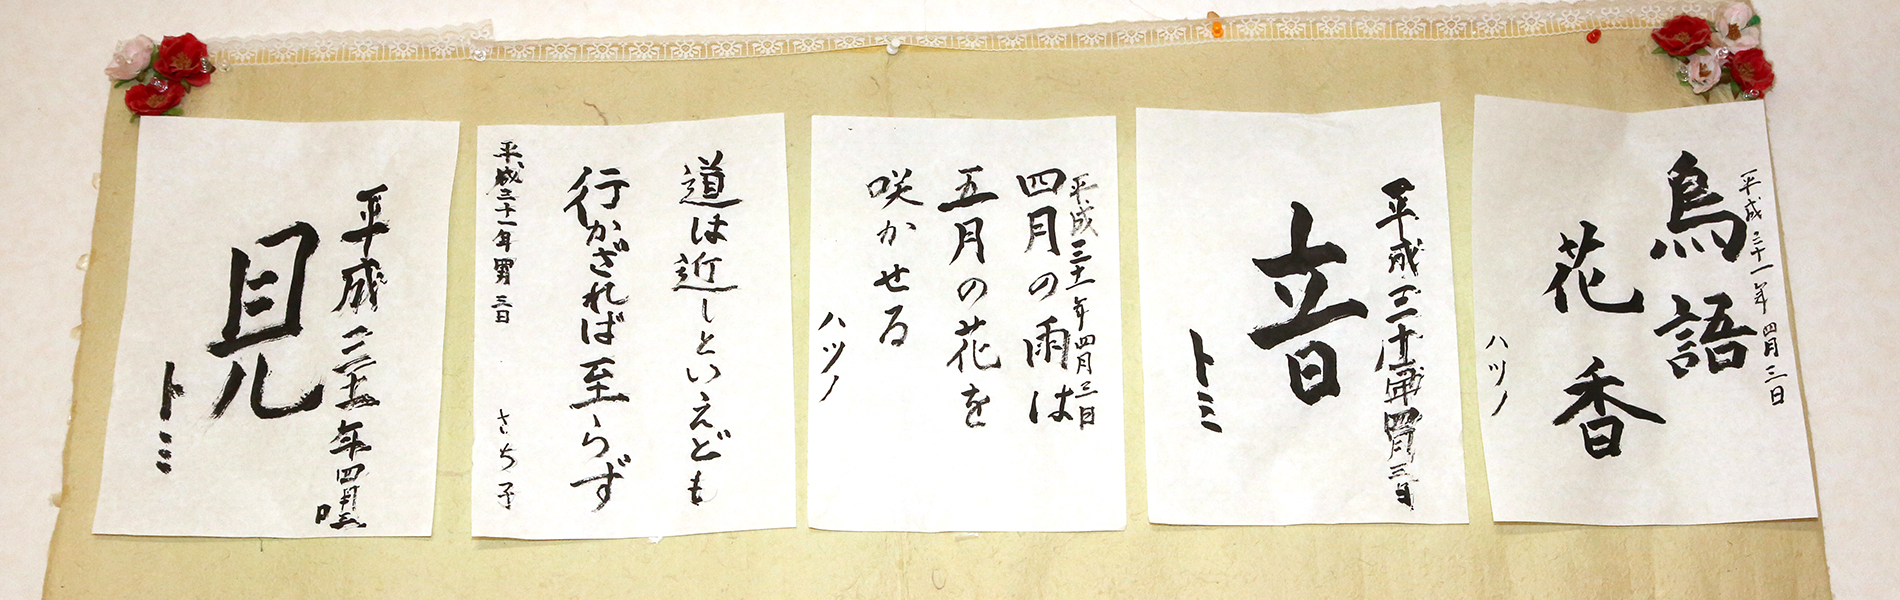 平成三十一年四月三日
鳥語
花香
ハツノ
平成三十一年四月三日
音
トミ
平成三十一年四月三日
四月の雨は
五月の花を
咲かせる
ハツノ
道は近しといえども
行かざれば至らず
平成三十一年四月三日 さち子
平成三十一年四月三日
見
トミ